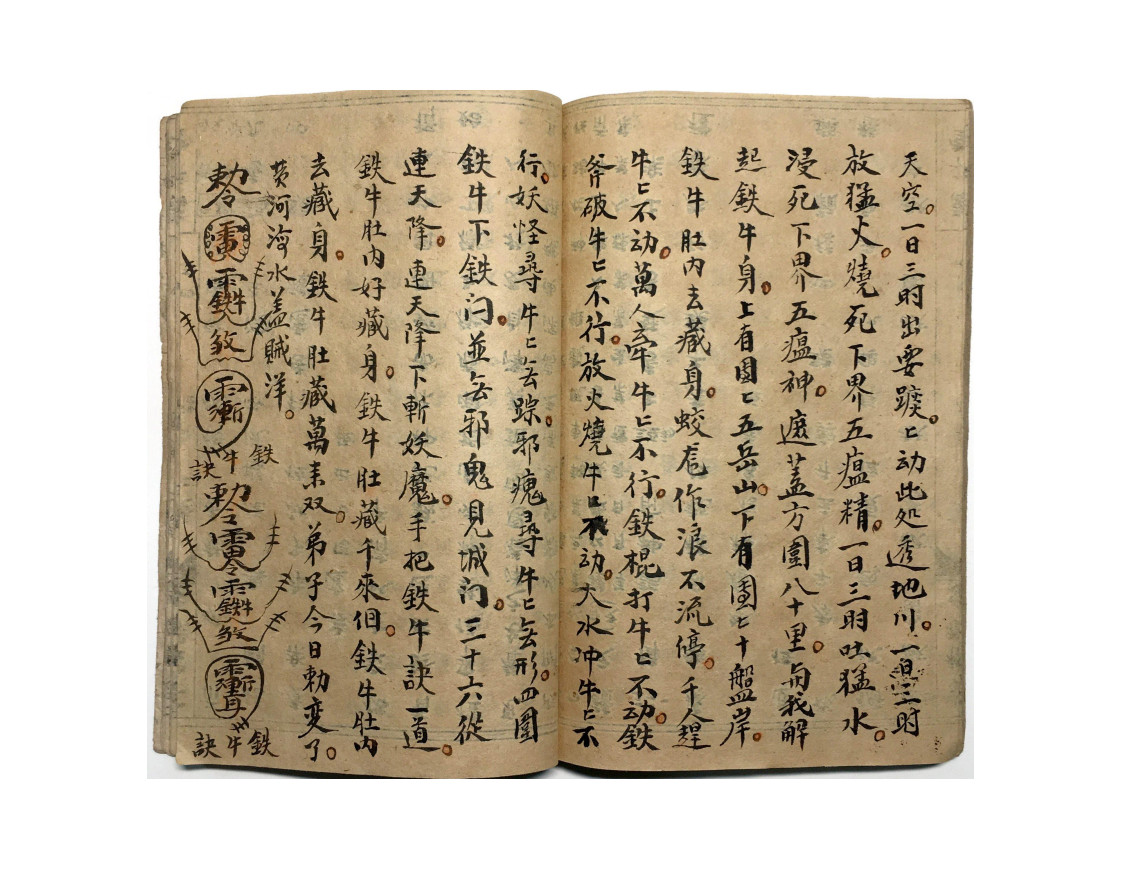 天空。一日三时出要踱。匕动此処透地川。一日三时
放猛火。燒死下界五瘟精。一日三时吐猛水。
浸死下界五瘟神。遮盖方圍八十里。與我解
起鉄牛身。上有國匕五岳山。下有國匕十盤岸。
鉄牛肚内去藏身。蛟尨作浪不流停。千人趕
牛匕不动。萬人牵牛匕不行。鉄棍打牛匕不动。鉄
斧破牛匕不行。放火燒牛匕不动。大水冲牛匕不
行。妖怪尋牛匕去踪。邪魂尋牛匕无形。四圍
鉄牛下鉄门。並无邪鬼見城门。三十六從
連天降。連天降下斬妖魔。手把鉄牛訣一道。
鉄牛肚内好藏身。鉄牛肚藏千來個。鉄牛肚内
去藏身。鉄牛肚藏萬来双。弟子今日勅变了。
黄河海水盖賊洋。
勅 煞
鉄牛訣
勅 令 煞
鉄牛訣